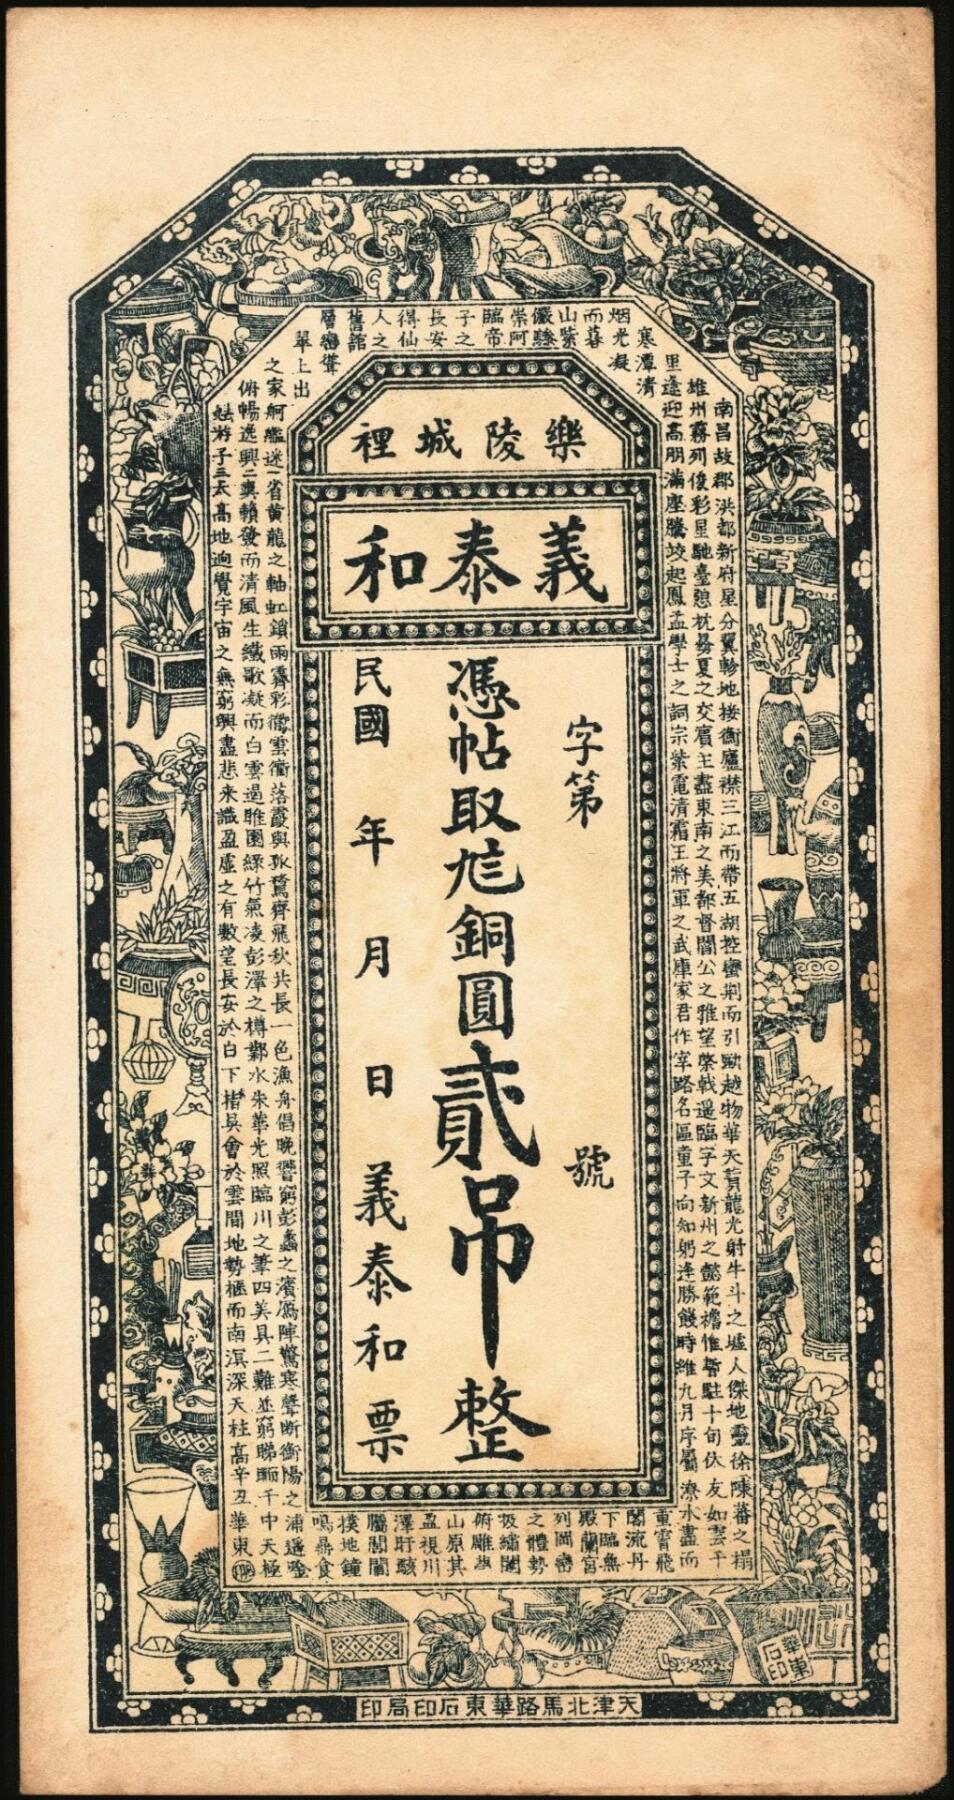 樂陵城裡
義泰和
字第　號
憑帖取兌銅圓貳吊整
民國　年　月　日　義泰和票
南昌故郡洪都新府星分翼軫地接衡廬襟三江而帶五湖控蠻荆而引甌越物華天寶龍光射牛斗之墟人傑地靈徐陳蕃之榻
雄州霧列俊彩星馳臺枕夏之交賓主盡東南之美都督閻公之雅望棨戟遥臨宇文新州之懿範襜惟暫駐十旬休友如雲千
里逢迎高朋滿座騰蛟起鳳孟學士之詞宗紫電清霜王將軍之武庫家君作宰路名區童子何知躬逢勝餞時維九月序屬潦水盡而
寒潭清
烟光凝
而暮
山紫
儼驂
崇阿
臨帝
子之
長安
得仙
人之
舊館
層巒聳
翠上出
重霄飛
閣流丹
下臨無
殿蘭宮
列岡巒
之體勢
披繡闥
俯雕甍
山原其
盈視川
澤盱駭
騰閣閭
撲地鐘
鳴鼎食
之家舸艦迷一省黃龍之軸虹鎖雨霽彩徹雲衢落霞與孤鶩齊飛秋共長一色漁舟唱晚響窮彭蠡之濱鴈陣驚寒聲斷衡陽之浦遥唫
俯暢逸興二爽籟發而清風生纖歌凝而白雲遏睢園綠竹氣凌彭澤之樽鄴水朱華光照臨川之筆四美具二難並窮睇眄千中天極
娛將子三天高地迥覺宇宙之無窮興盡悲來識盈虛之有數望長安於日下指吳會於雲間地勢極而南溟深天柱高辛丑華東印
華東石印
天津北馬路華東石印局印